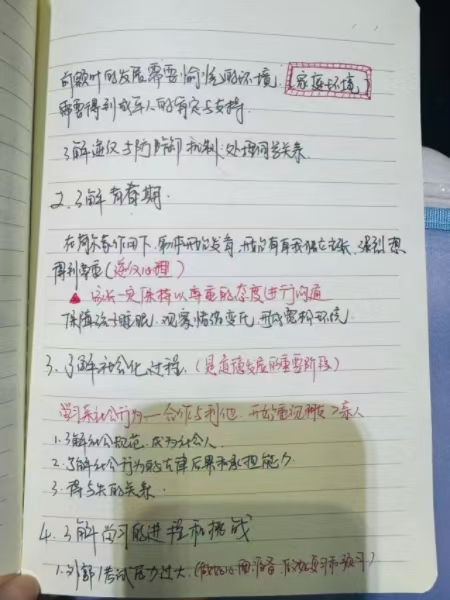 前额叶的发展需要愉悦的环境.【家庭环境】
需要得到成年人的肯定与支持
了解逆反与防御机制:处理同学关系.
2.了解青春期.
在荷尔蒙作用下.身体开始发育.开始有自我独立主张.强烈想
得到尊重(逆反心理)
▲家长一定保持以尊重的态度进行沟通
保障孩子睡眠.观察情绪变化.形成宽松环境.
3.了解社会化过程.(是道德发展的重要阶段)
学习亲社会行为—合作与利他.开始重视朋友>亲人
1.了解社会规范.成为社会人.
2.了解社会行为的法律后果和承担能力
3.得与失的关系.
4.了解学习的进程和挑战
1.外部1考试压力过大.